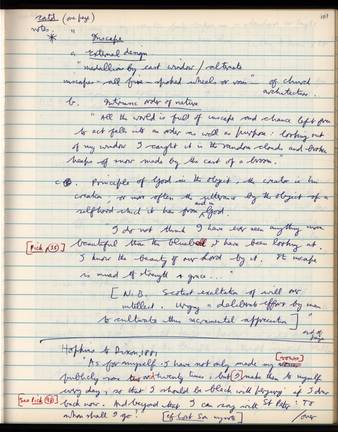 notes. "
* Inscape
a. External design
"medallion by east window / alternate
inscapes - all five - spoked wheels or " of church
architecture.
b. Intrinsic order of nature
"All the world is full of inscape and chance left free
to act falls into an order as well as purpose: looking out
of my window I caught it in the random clods and broken
heaps of snow made by the cast of a broom."
c. Principle of God in the object, the creator in his
creation; or more often the utterance by the object of a
selfhood which it has from and in God.
I do not think I have ever seen anything more
[Pick p(35)] beautiful than the bluebell I have been looking at.
I know the beauty of our Lord by it. Its inscape
is mixed of strength & grace..."
[N.B. Scotist exaltation of will over
intellect. Urging "deliberate effort by man
to cultivate this incremental apprehension]"
Hopkins to Dixon, 1881
"As for myself I have not only made my vows
publicly some two and twenty times, but I make them to myself
every day, so that I should be black with perjury if I drew
back now. And beyond that I can say with St Peter: To
whom shall I go? /over